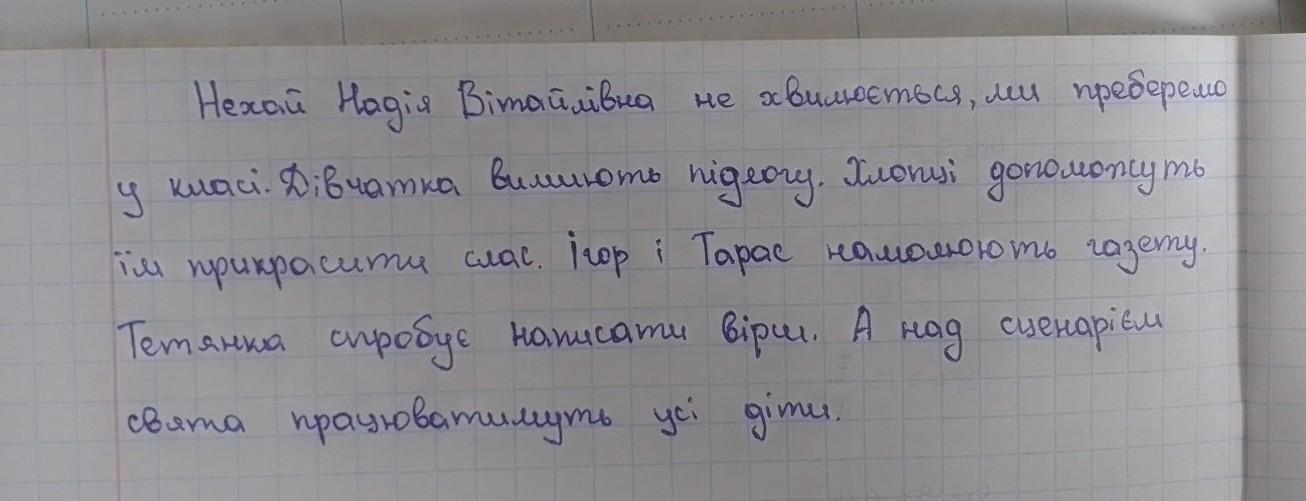 Нехай Надія Вітайлівна не хвилюється, ми преберемо
у класі. Дівчатка вимиють підлогу. Хлопці допоможуть
їм прикрасити клас. Ігор і Тарас намалюють газету.
Тетянка спробує написати вірш. А над сценарієм
свята працюватимуть усі діти.